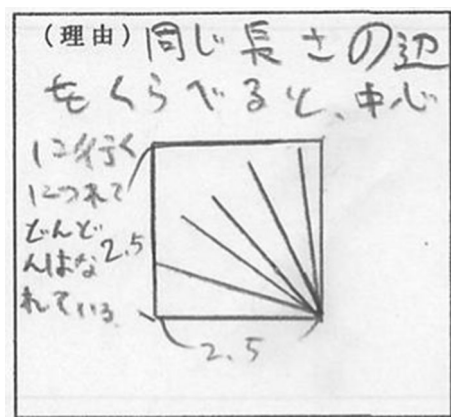 (理由) 同じ長さの辺
をくらべると、中心
に行く
につれて
どんど
んはな
れている
2.5
2.5